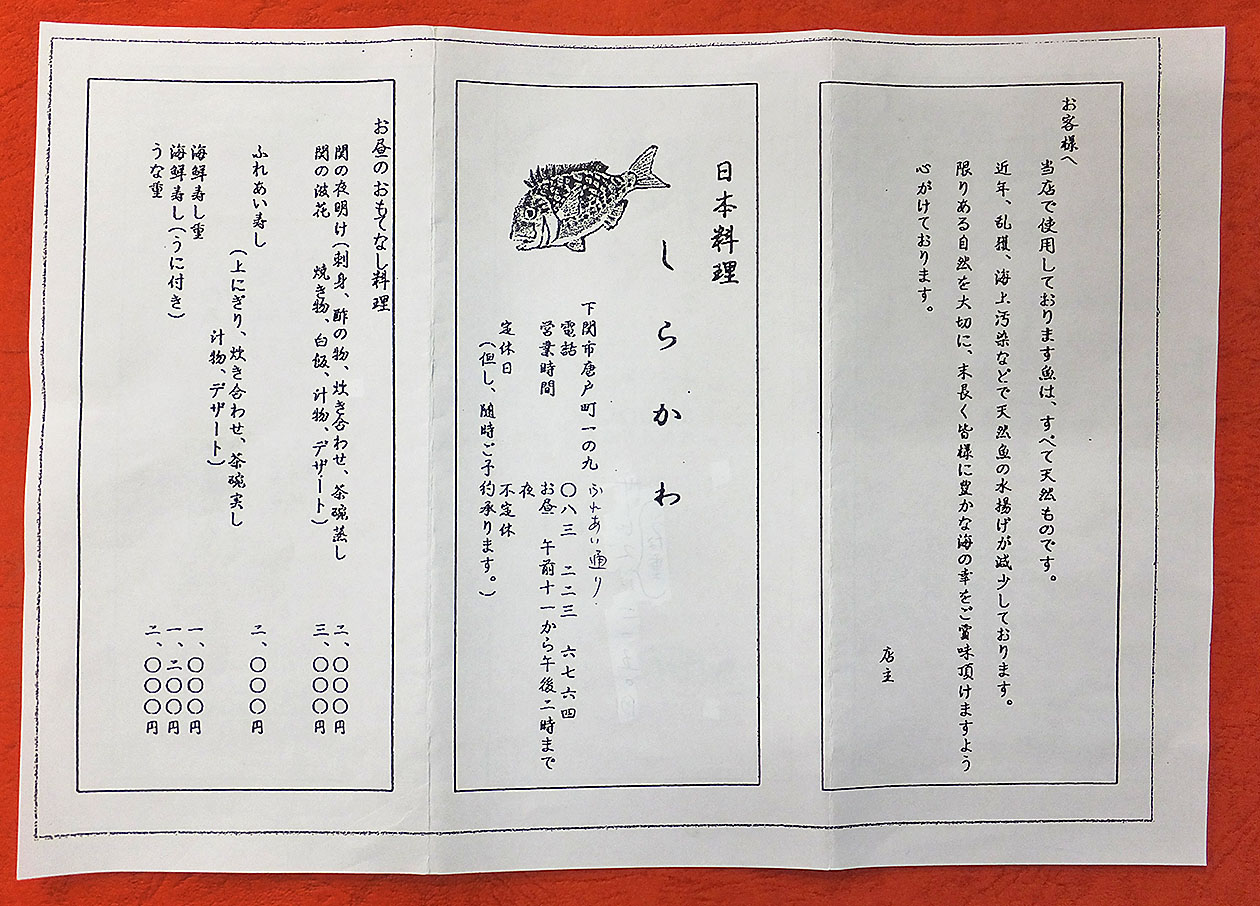 お客様へ
当店で使用しております魚は、すべて天然ものです。
近年、乱獲、海上汚染などで天然魚の水揚げが減少しております。
限りある自然を大切に、末長く皆様に豊かな海の幸をご賞味頂けますよう
心がけております。
店主
日本料理
しらかわ
下関市唐戸町一の九 ふれあい通り
電話 〇八三 二二三 六七六四
営業時間 お昼 午前十一から午後二時まで
夜
定休日 不定休
(但し、随時ご予約承ります。)
お昼のおもてなし料理
関の夜明け(刺身、酢の物、炊き合わせ、茶碗蒸し 二、〇〇〇円
関の波花 焼き物、白飯、汁物、デザート) 三、〇〇〇円
ふれあい寿し 二、〇〇〇円
(上にぎり、炊き合わせ、茶碗実し
汁物、デザート)
海鮮寿し重 一、〇〇〇円
海鮮寿し(うに付き) 一、二〇〇円
うな重 二、〇〇〇円